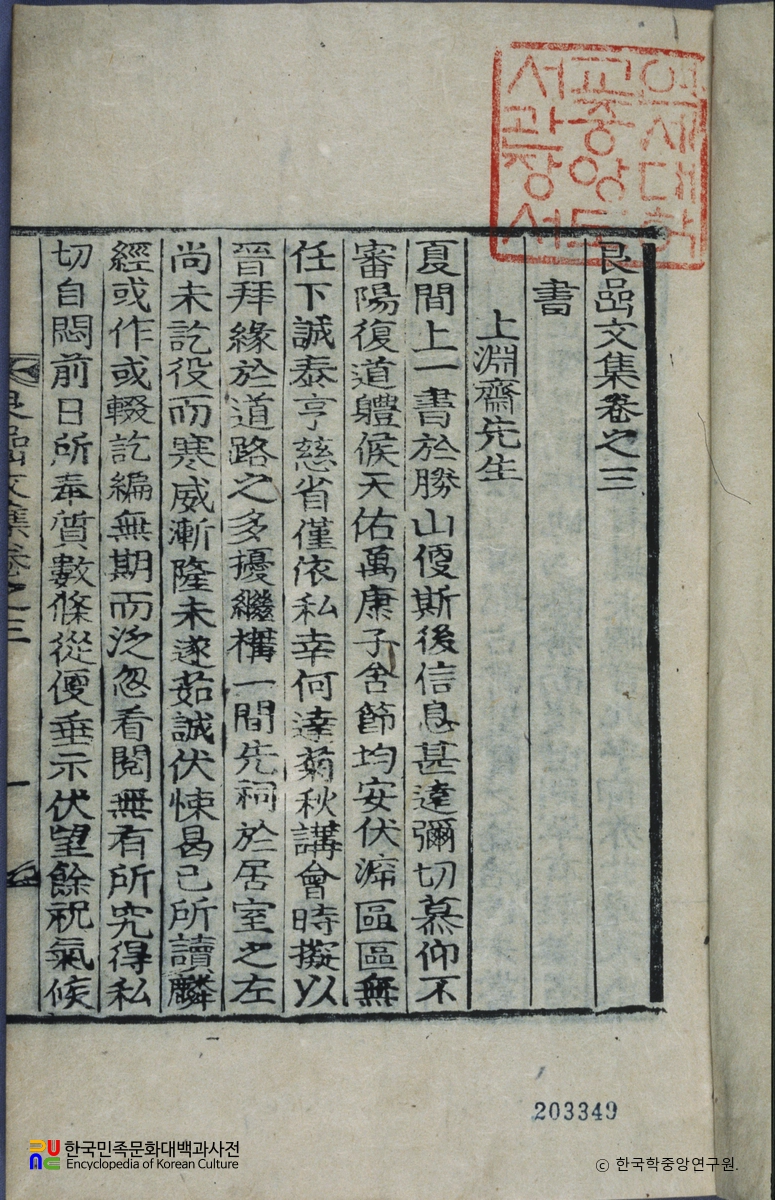 연세대학
교중앙도
서관장서
艮嵒文集卷之三
書
上淵齋先生
夏間上一書於勝山便斯後信息甚違彌切慕仰不
審陽復道軆候天佑萬康子舍節均安伏溯區區無
任下誠泰亨慈省僅依私幸何達菊秋講會時擬以
晉拜緣於道路之多擾繼構一間先祠於居室之左
尚未訖役而寒威漸隆未遂茹誠伏悚曷已所讀麟
經或作或輟訖編無期而泛忽看閱無有所究得私
切自悶前日所奉質數條從便垂示伏望餘祝氣候
艮嵒文集卷之三
一
203349
한국민족문화대백과사전
Encyclopedia of Korean Culture
© 한국학중앙연구원.